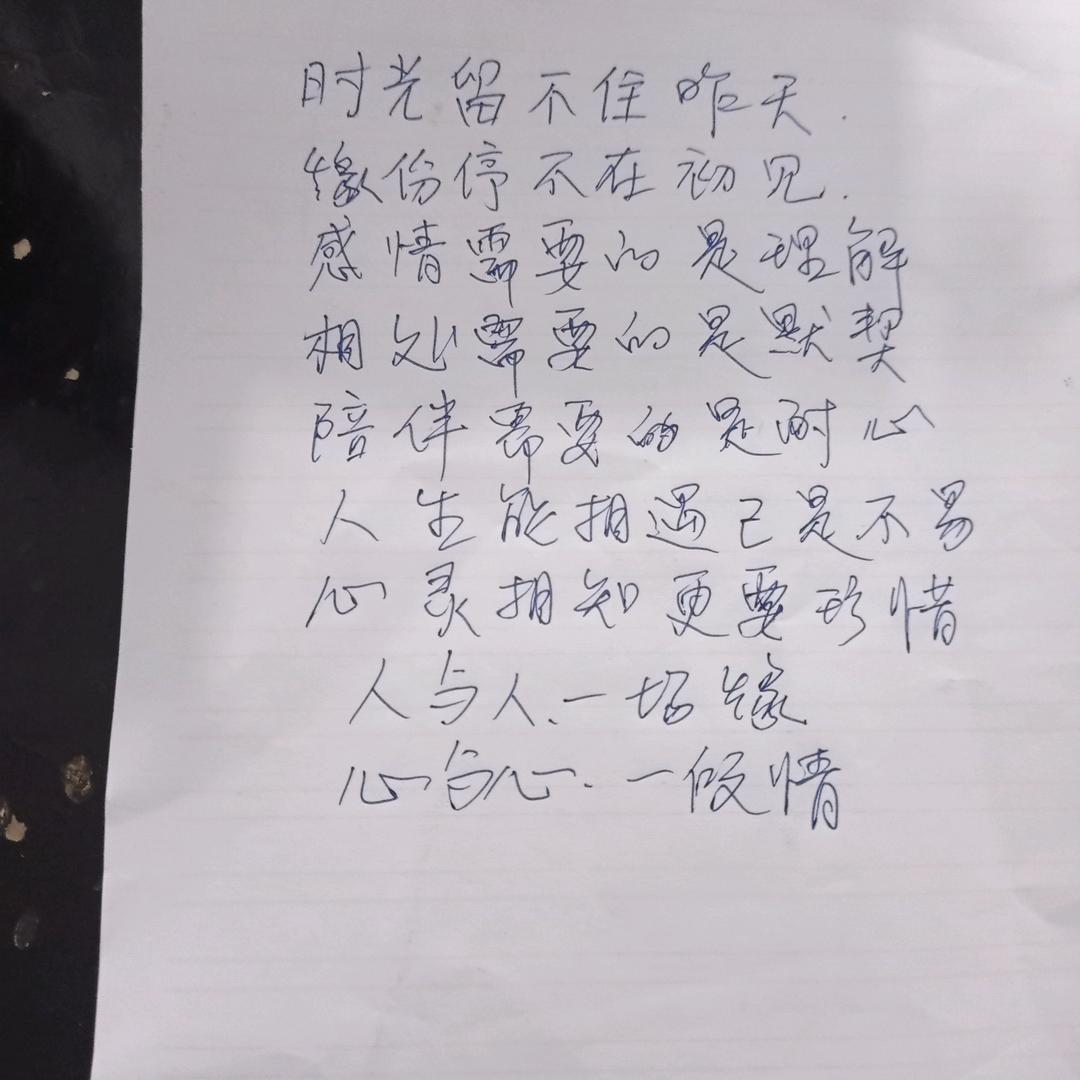 时光留不住昨天.
缘份停不在初见.
感情需要的是理解
相处需要的是默契
陪伴需要的是耐心
人生能相遇已是不易
心灵相知更要珍惜
人与人、一场缘
心与心.一段情